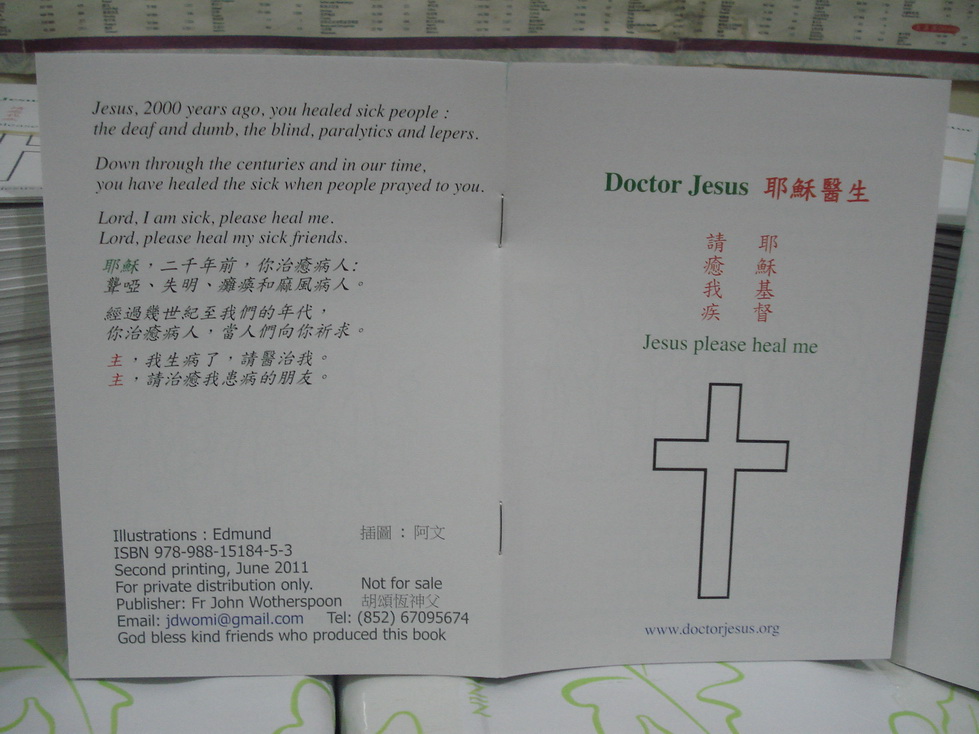 Jesus, 2000 years ago, you healed sick people :
the deaf and dumb, the blind, paralytics and lepers.
Down through the centuries and in our time,
you have healed the sick when people prayed to you.
Lord, I am sick, please heal me.
Lord, please heal my sick friends.
耶穌，二千年前，你治癒病人:
聾啞、失明、癱瘓和痲風病人。
經過幾世紀至我們的年代，
你治癒病人，當人們向你祈求。
主，我生病了，請醫治我。
主，請治癒我患病的朋友。
Illustrations : Edmund 插圖 : 阿文
ISBN 978-988-15184-5-3
Second printing, June 2011
For private distribution only. Not for sale
Publisher: Fr John Wotherspoon 胡頌恆神父
Email: jdwomi@gmail.com Tel: (852) 67095674
God bless kind friends who produced this book
Doctor Jesus 耶穌醫生
耶穌基督
請癒我疾
Jesus please heal me
www.doctorjesus.org